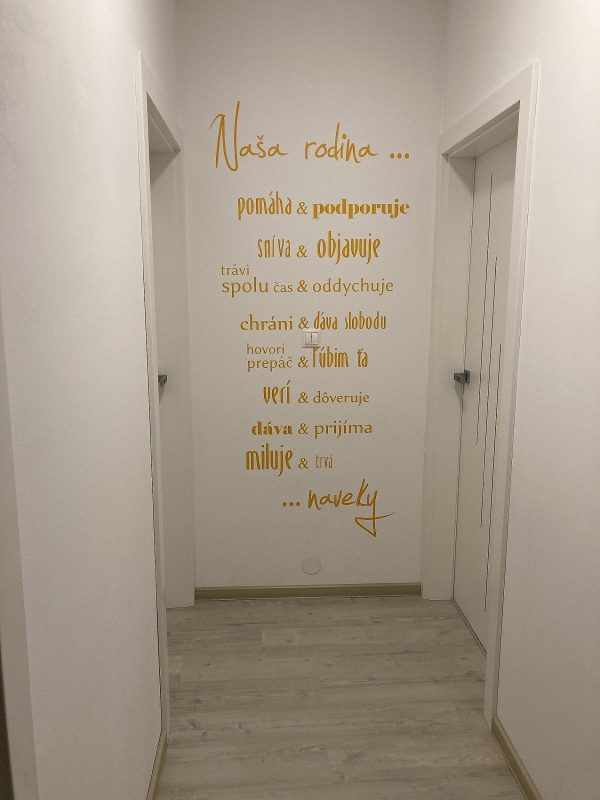 Naša rodina ...
pomáha & podporuje
sníva & objavuje
trávi
spolu čas & oddychuje
chráni & dáva slobodu
hovorí
prepáč & ľúbim ťa
verí & dôveruje
dáva & prijíma
miluje & trvá
... naveky